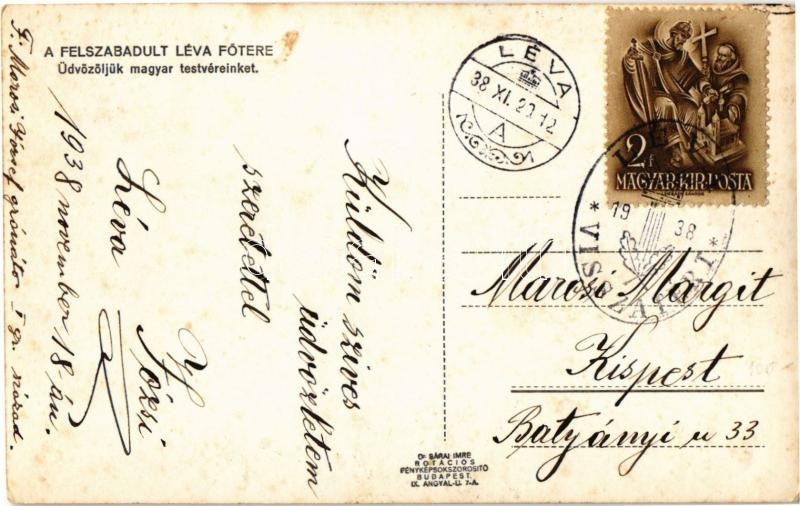 A FELSZABADULT LÉVA FŐTERE
Üdvözöljük magyar testvéreinket.
F. Marosi József gránátos I gr. század.
1938 november 18 án.
Léva
Józsi
Küldöm szives
üdvözletem
szeretettel
LÉVA
38 XI. 20 12
A
2 f
MAGYAR·KIR·POSTA
LÉVA
19 38
* VISSZATÉRT *
Marosi Margit
Kispest
Batyányi u 33
Dr SÁRAI IMRE
ROTÁCIÓS
FÉNYKÉPSOKSZOROSITÓ
BUDAPEST.
IX. ANGYAL-U. 7-A.